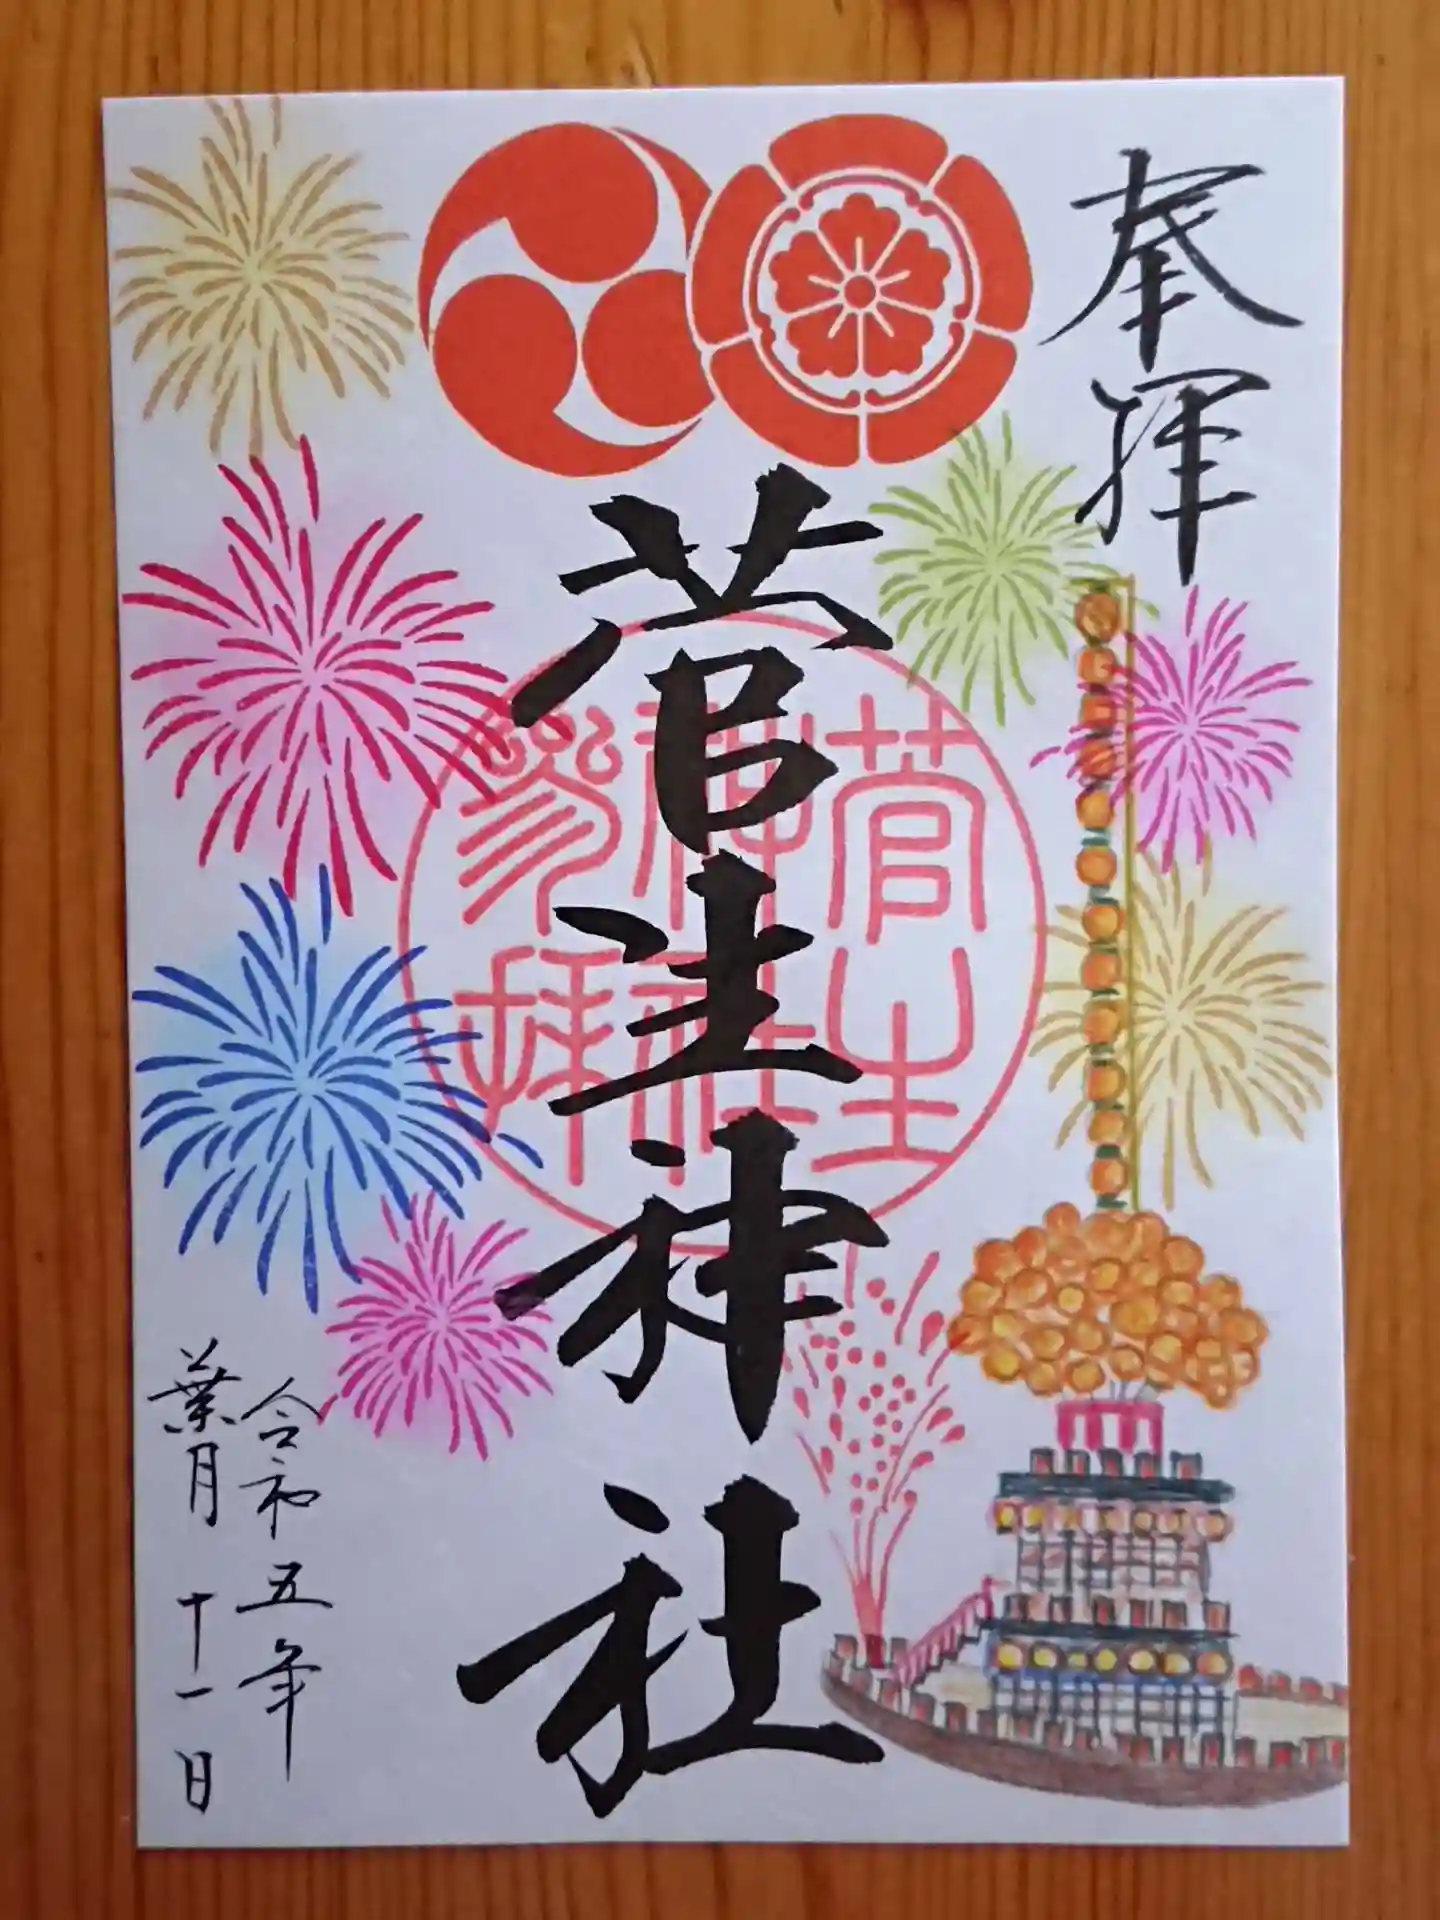 奉拝
菅生神社
菅生
神社
参拝
令和五年
葉月 十一日